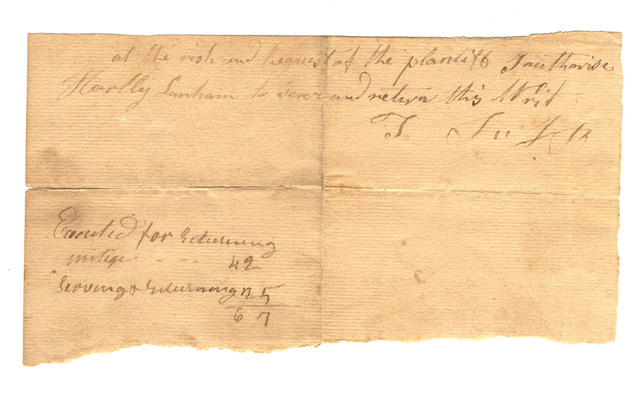 at the risk and Request of the plantiff I authorise
Hartly Lanham to serve and return this Writ
T
Executed for Returning
42
Serving & Returning 25
67